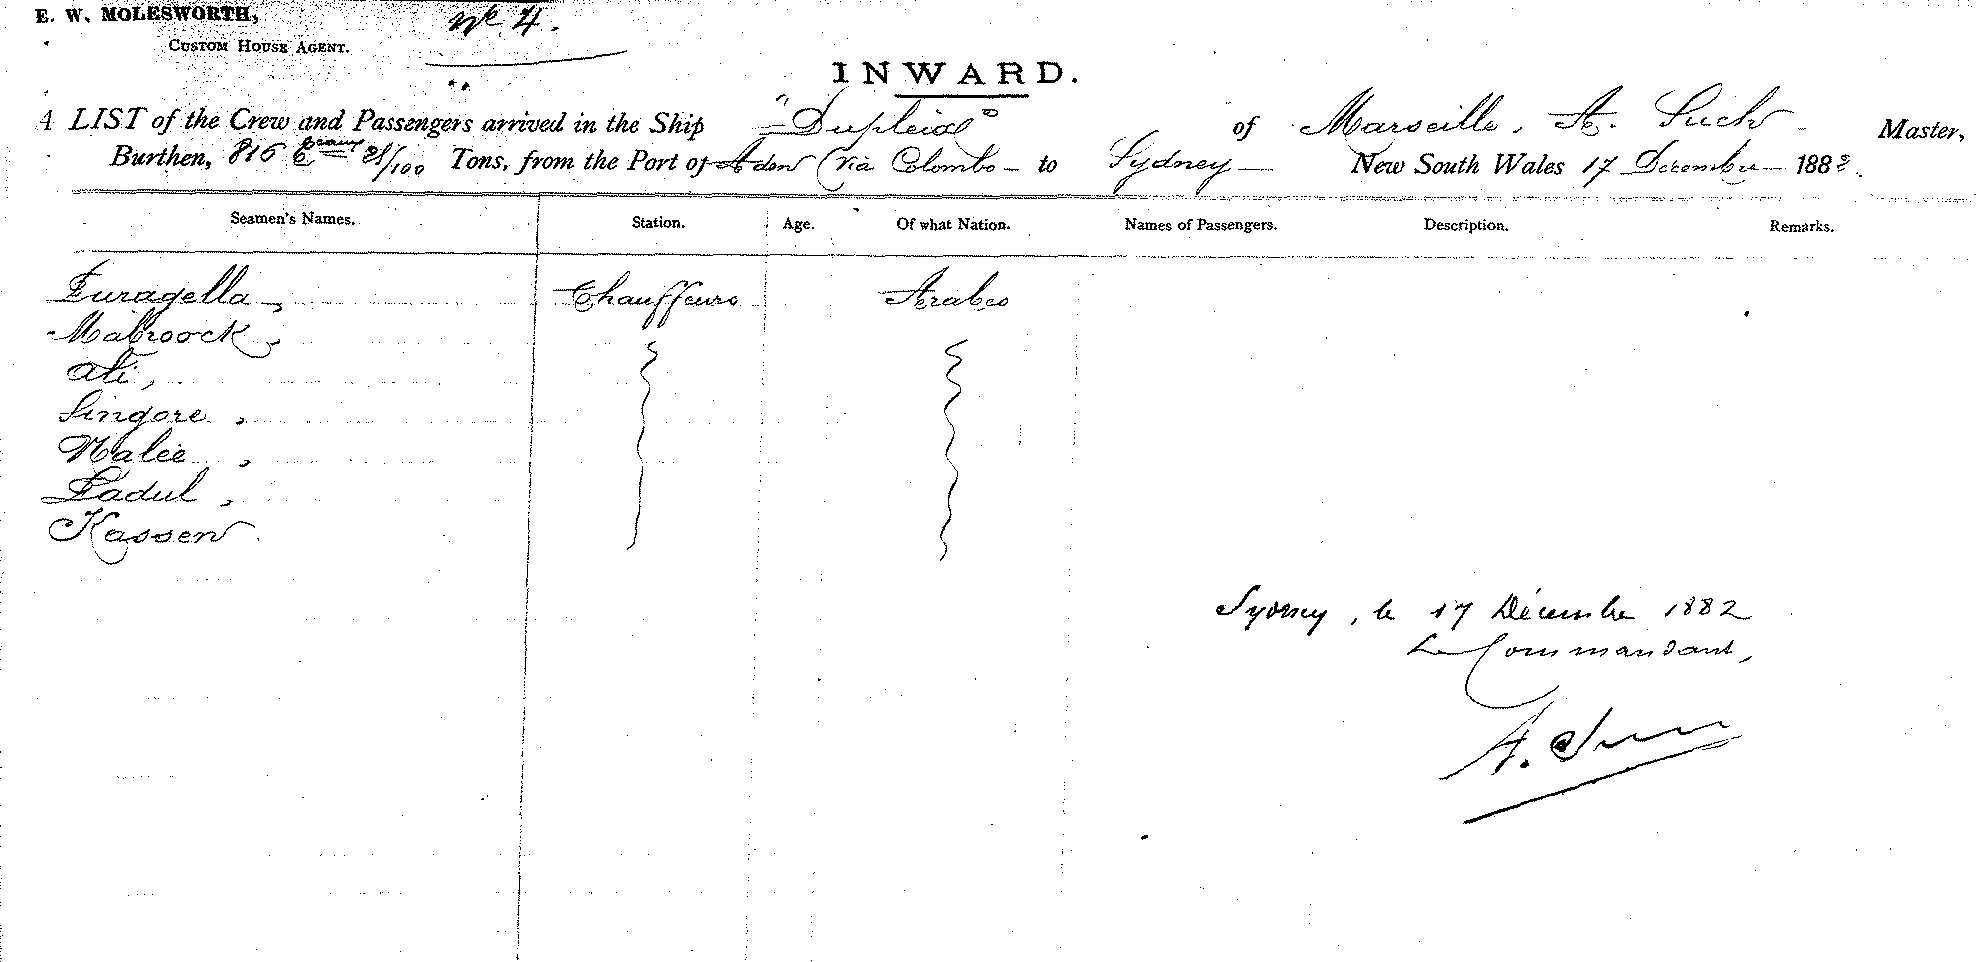 E. W. MOLESWORTH,
CUSTOM HOUSE AGENT.
No 4.
INWARD.
A LIST of the Crew and Passengers arrived in the Ship "Dupleix" of Marseille, A. Such Master,
Burthen, 816 Tx 21/100 Tons, from the Port of Aden (via Colombo - to Sydney - New South Wales 17 Decembre - 1882.
Seamen's Names. Station. Age. Of what Nation. Names of Passengers. Description. Remarks.
Furagella, Chauffeurs Arabes
Mabroock,
Ali,
Singore,
Malee,
Fadul,
Kassen
Sydney, le 17 Décembre 1882
Le Commandant,